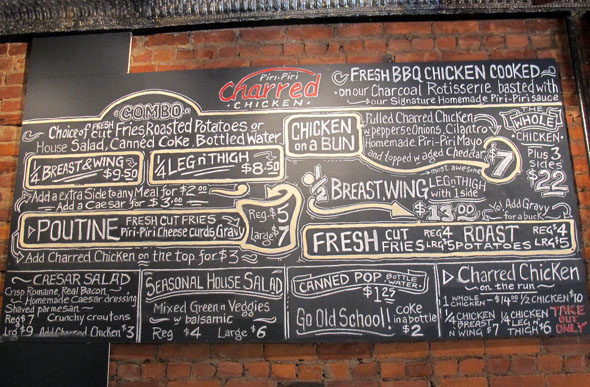 Piri-Piri
Charred
CHICKEN
FRESH BBQ CHICKEN COOKED
on our Charcoal Rotisserie basted with
our Signature Homemade Piri-Piri sauce
COMBO
Choice of FRESH Cut Fries Roasted Potatoes or
House Salad, Canned Coke, Bottled Water
1/4 BREAST & WING $9.50
1/4 LEG n' THIGH $8.50
Add a extra Side to any Meal for $2.00
Add a Caesar for $3.00
POUTINE FRESH CUT FRIES
Piri-Piri Cheese curds, Gravy
Reg. $5
Large $7
Add Charred Chicken on the top for $3
CHICKEN
on a BUN
Pulled Charred Chicken
w peppers Onions, Cilantro
Homemade Piri-Piri Mayo
and topped w aged Cheddar
$7
most awesome
THE
Whole
CHICKEN
Plus 3
Sides
$22
1/2 BREAST WING LEG n THIGH
with 1 side
$13.00
Yo!, Add Gravy
for a buck
FRESH CUT FRIES REG $4 LRG $5
ROAST POTATOES REG $4 LRG $5
CAESAR SALAD
Crisp Romaine, Real Bacon
Homemade Caesar dressing
Shaved parmesan
Reg $7 Crunchy croutons
Lrg $9 Add Charred Chicken $3
SEASONAL HOUSE SALAD
Mixed Green n Veggies
w balsamic
Reg $4 Large $6
CANNED POP BOTTLE WATER
$1.27
Go Old School!
coke
in a bottle
$2
Charred Chicken
on the run
1 WHOLE CHICKEN $14.00 1/2 CHICKEN $10
1/4 CHICKEN BREAST N WING $7
1/4 CHICKEN LEG n THIGH $6
TAKE
OUT
ONLY